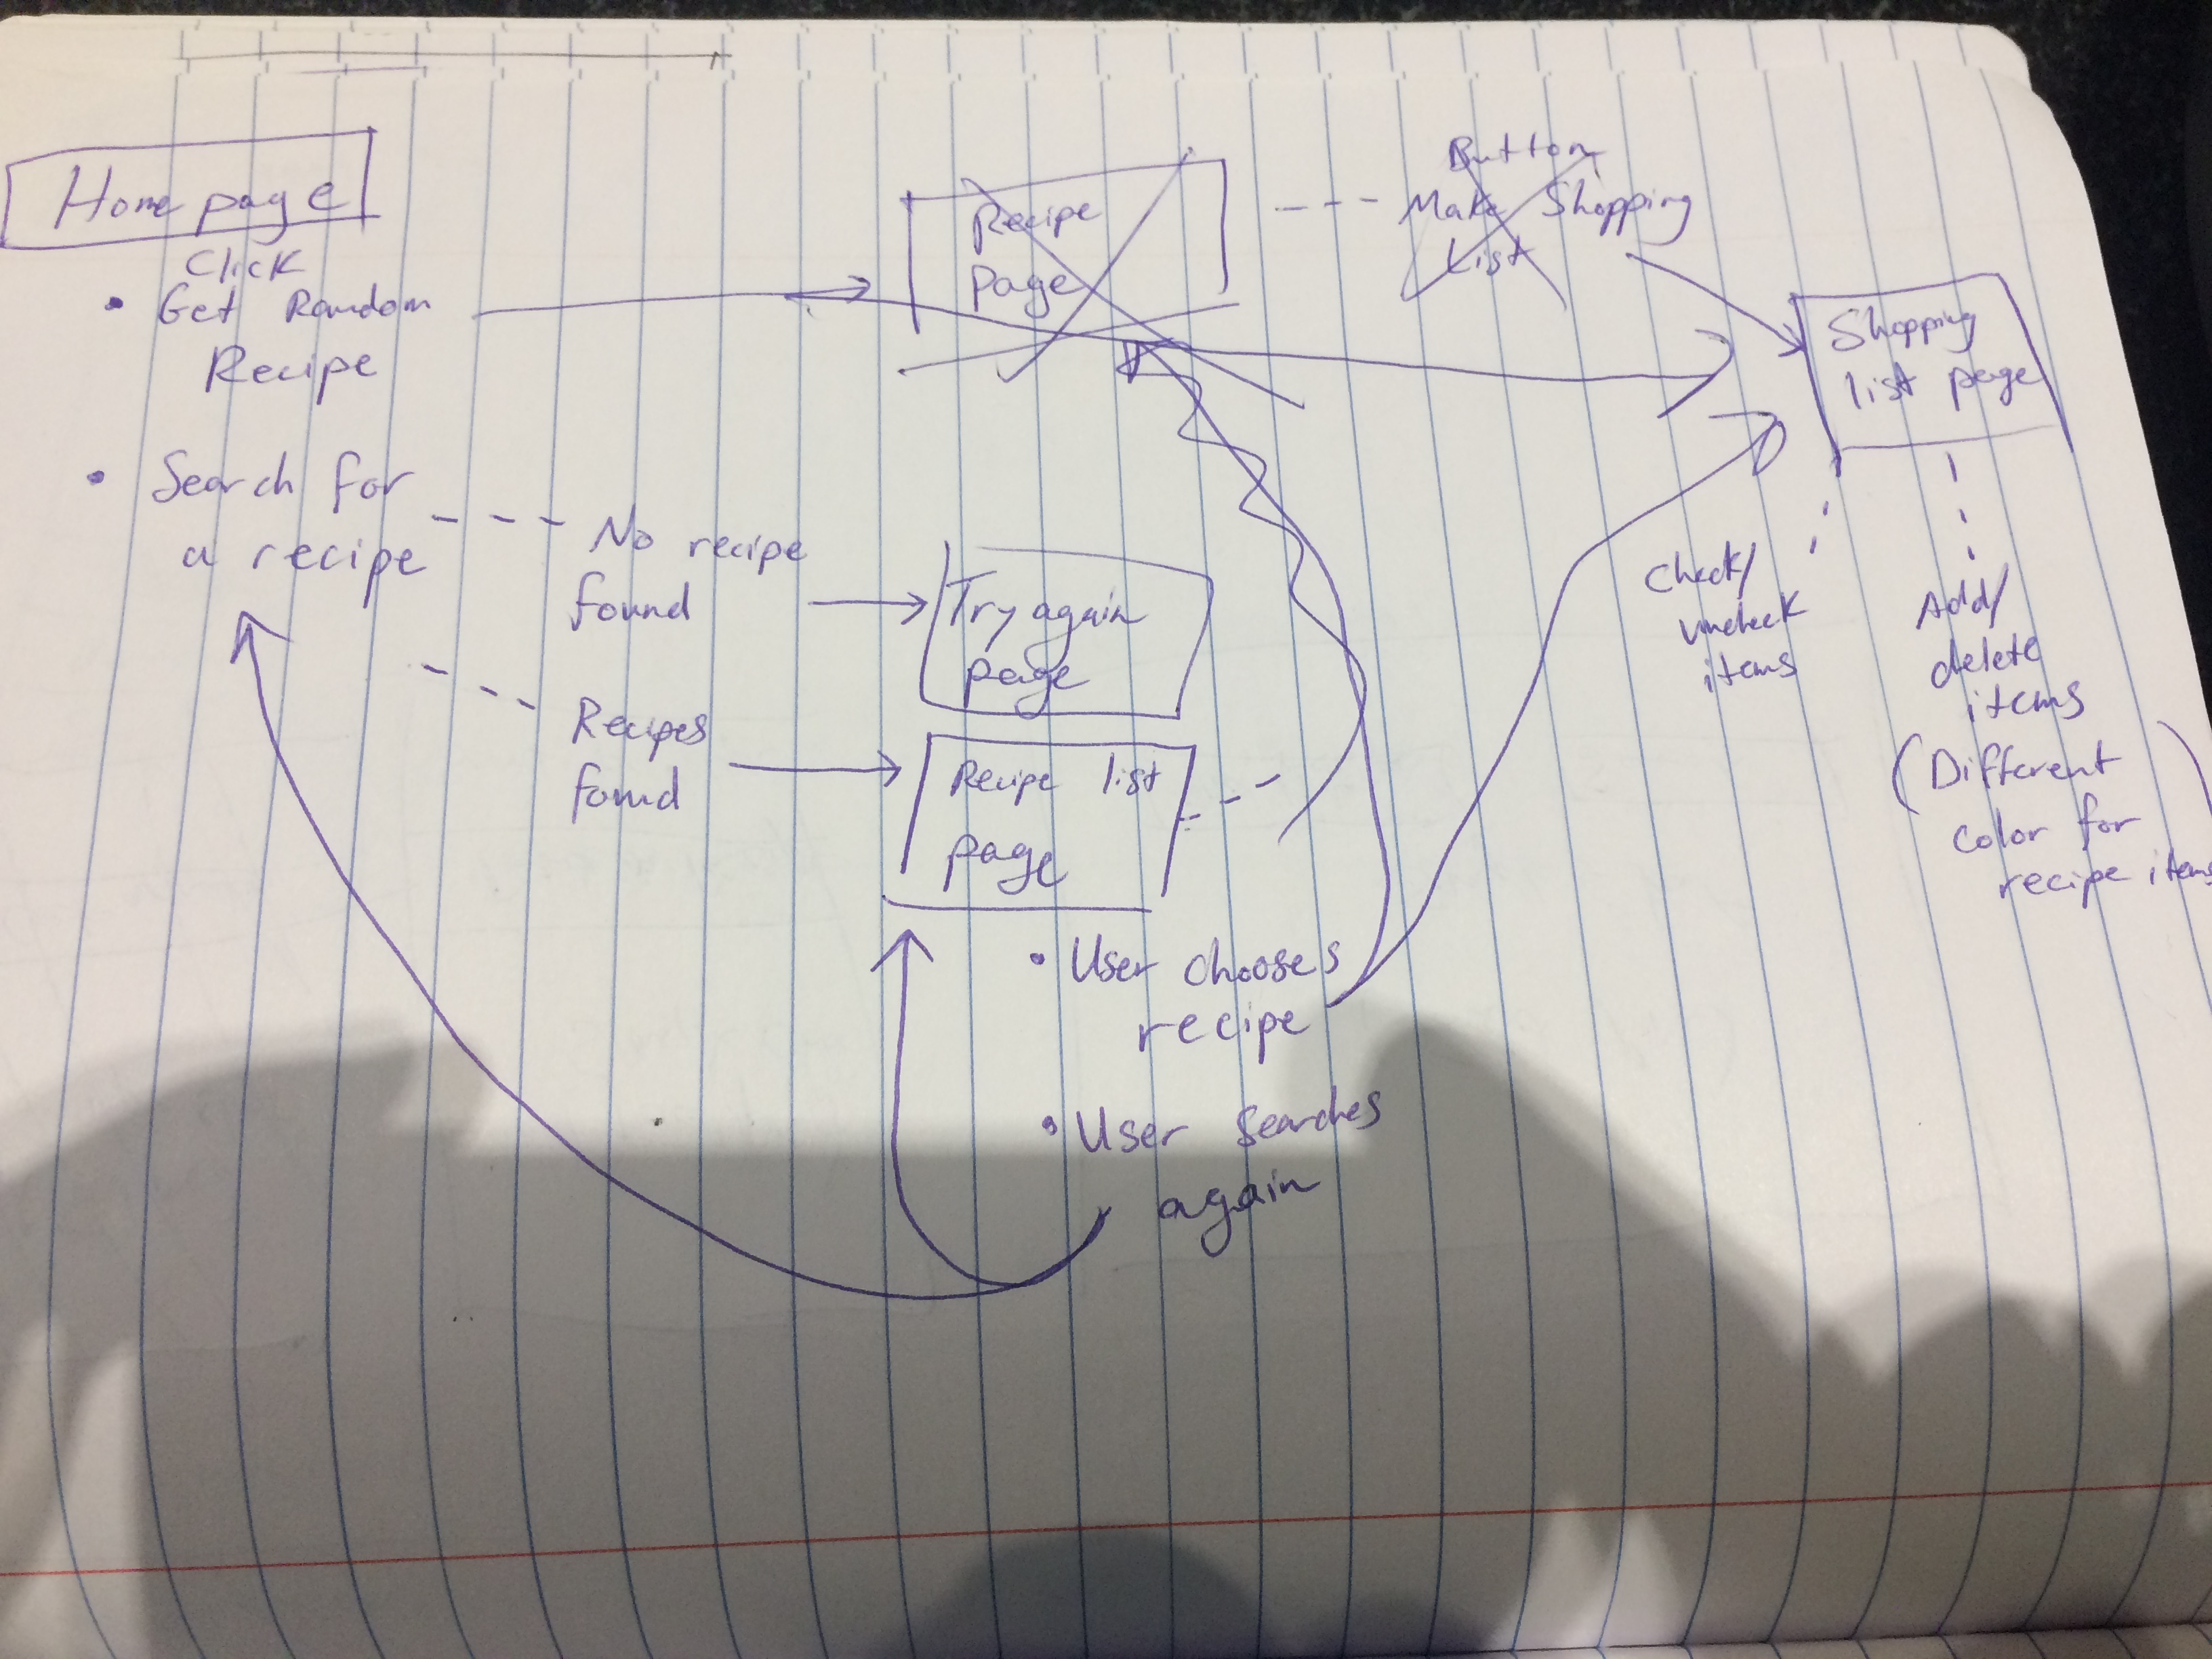 Home page
• Click
Get Random
Recipe
• Search for
a recipe
No recipe
found
Recipes
found
Recipe
page
Try again
page
Recipe list
page
• User chooses
recipe
• User searches
again
Button
Make Shopping
List
Shopping
list page
check/
uncheck
items
Add/
delete
items
(Different
color for
recipe items